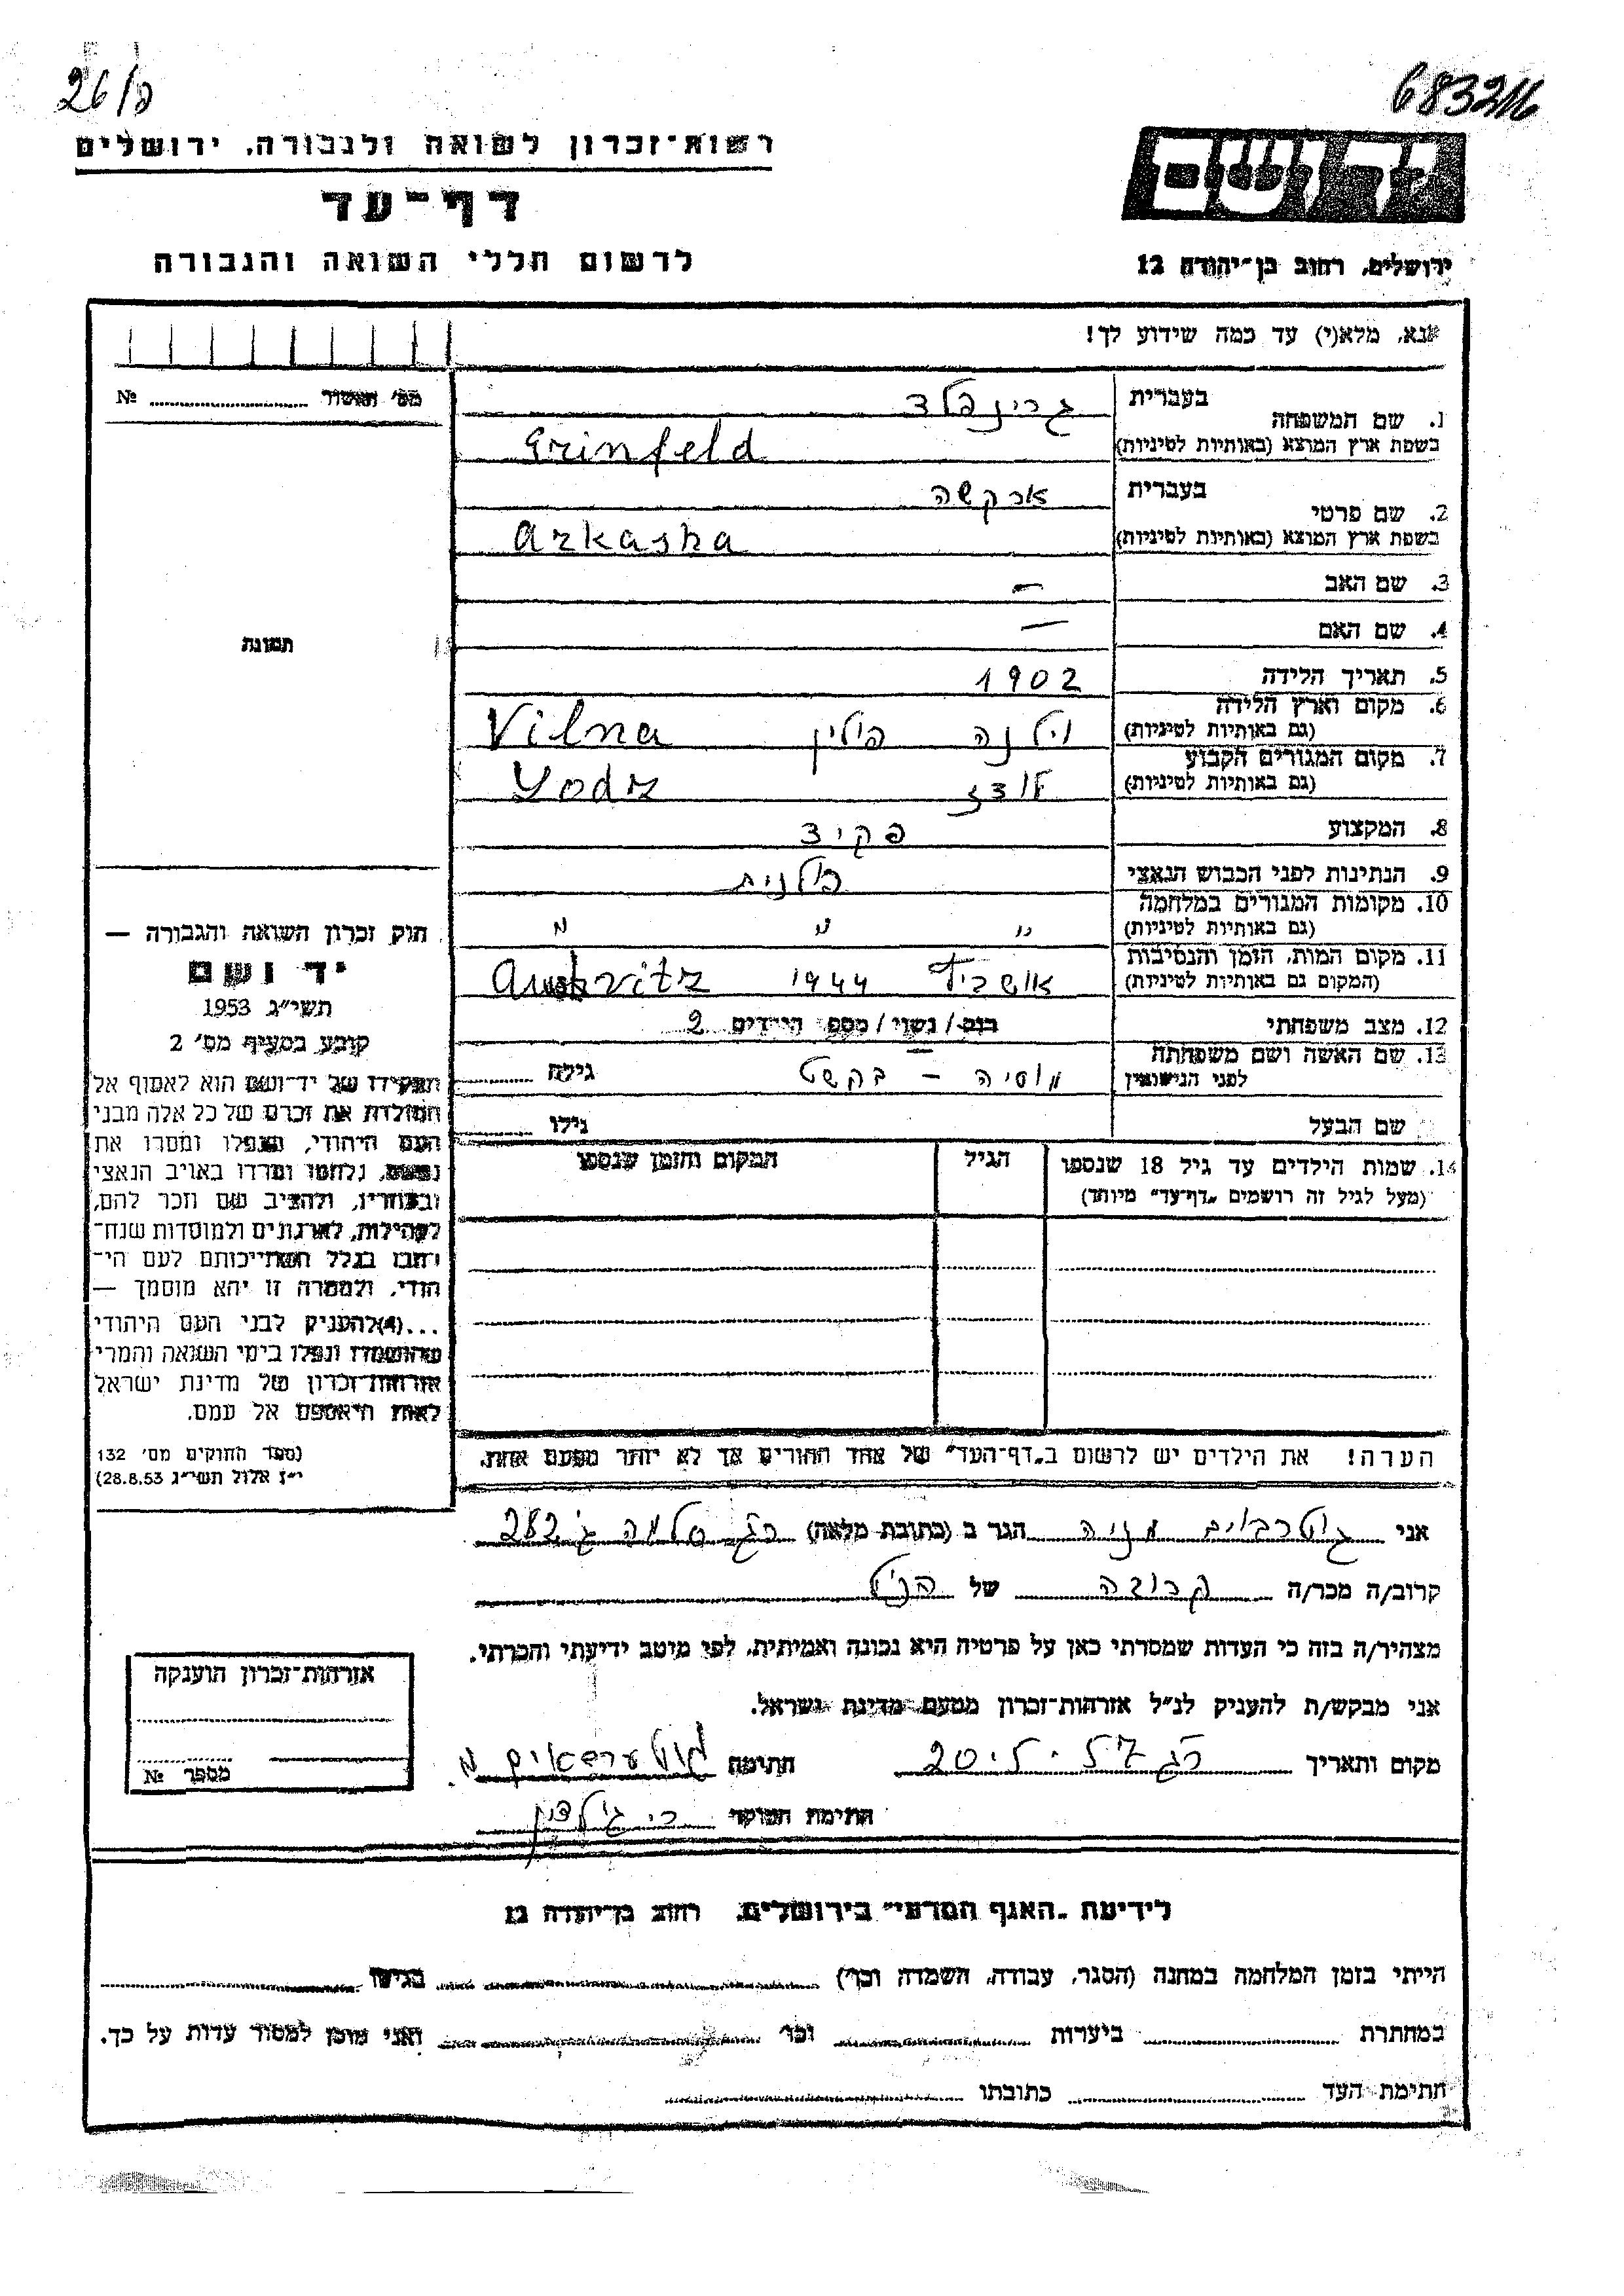 26/פ
683216
רשות־זכרון לשואה ולגבורה, ירושלים
דף־עד
לרשום חללי השואה והגבורה
יד ושם
ירושלים, רחוב בן־יהודה 12
אנא, מלא(י) עד כמה שידוע לך!
מס' תאשור № 
1. שם המשפחה בעברית גרינפלד
בשפת ארץ המוצא (באותיות לטיניות) Grinfeld
2. שם פרטי בעברית ארקשה
בשפת ארץ המוצא (באותיות לטיניות) Arkasha
3. שם האב —
4. שם האם —
5. תאריך הלידה 1902
6. מקום וארץ הלידה (גם באותיות לטיניות) וילנה פולין Vilna
7. מקום המגורים הקבוע (גם באותיות לטיניות) לודז Lodz
8. המקצוע פקיד
9. הנתינות לפני הכבוש הנאצי פולנית
10. מקומות המגורים במלחמה (גם באותיות לטיניות) " " "
11. מקום המות, הזמן והנסיבות (המקום גם באותיות לטיניות) אושביץ 1944
12. מצב משפחתי רווק/נשוי/מספר הילדים 2
13. שם האשה ושם משפחתה לפני הנישואין מוסיה – בקשט גילה
שם הבעל גילו
14. שמות הילדים עד גיל 18 שנספו (מעל לגיל זה רושמים „דף־עד" מיוחד) הגיל המקום והזמן שנספו
הערה! את הילדים יש לרשום ב„דף־העד" של אחד ההורים אך לא יותר מפעם אחת.
תמונת
חוק זכרון השואה והגבורה —
יד ושם
תשי"ג 1953
קובע בסעיף מס' 2
תפקידו של יד־ושם הוא לאסוף אל
המולדת את זכרם של כל אלה מבני
העם היהודי, שנפלו ומסרו את
נפשם, נלחמו ומרדו באויב הנאצי
ובעוזריו, ולהציב שם וזכר להם,
לקהילות, לארגונים ולמוסדות שנח־
רבו בגלל השתייכותם לעם הי־
הודי, ולמטרה זו יהא מוסמך —
...(4)להעניק לבני העם היהודי
שהושמדו ונפלו בימי השואה והמרי
אזרחות־זכרון של מדינת ישראל
לאות היאספם אל עמם.
(ספר החוקים מס' 132
י"ז אלול תשי"ג 28.8.53)
אני גוטרבוים מניה הגר ב (כתובת מלאה) רג סלמה ג' 282
קרוב/ה מכר/ה קרובה של הנ"ל
מצהיר/ה בזה כי העדות שמסרתי כאן על פרטיה היא נכונה ואמיתית, לפי מיטב ידיעתי והכרתי.
אני מבקש/ת להעניק לנ"ל אזרחות־זכרון מטעם מדינת ישראל.
מקום ותאריך חתימה
חתימת הפוקד
אזרחות־זכרון הוענקה
מספר №
לידיעת „האגף המדעי" בירושלים, רחוב בן־יהודה 12
הייתי בזמן המלחמה במחנה (הסגר, עבודה, השמדה וכו') בגיטו
במחתרת ביערות וכו' ואני מוכן למסור עדות על כך.
חתימת העד כתובתו